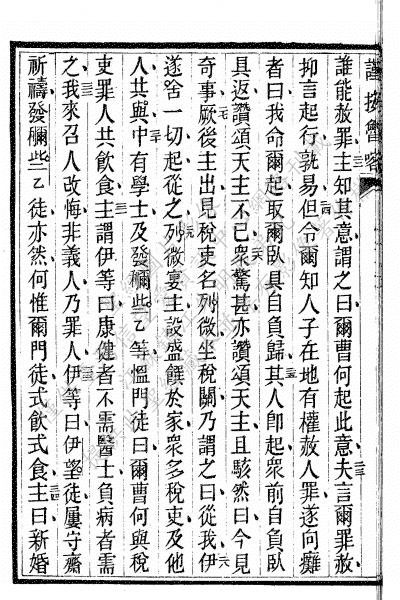 謹按
誰能赦罪主知其意謂之曰爾曹何起此意夫言爾罪赦
抑言起行孰易但令爾知人子在地有權赦人罪遂向癱
者曰我命爾起取爾臥具自負歸其人卽起眾前自負臥
具返讚頌天主不已眾驚甚亦讚頌天主且駭然曰今見
奇事厥後主出見稅吏名列微坐稅關乃謂之曰從我伊
遂舍一切起從之列微宴主設盛饌於家眾多稅吏及他
人共與中有學士及發禰些乙等慍門徒曰爾曹何與稅
吏罪人共飲食主謂伊等曰康健者不需醫士負病者需
之我來召人改悔非義人乃罪人伊等曰伊望徒屢守齋
祈禱發禰些乙徒亦然何惟爾門徒式飲式食主曰新婚